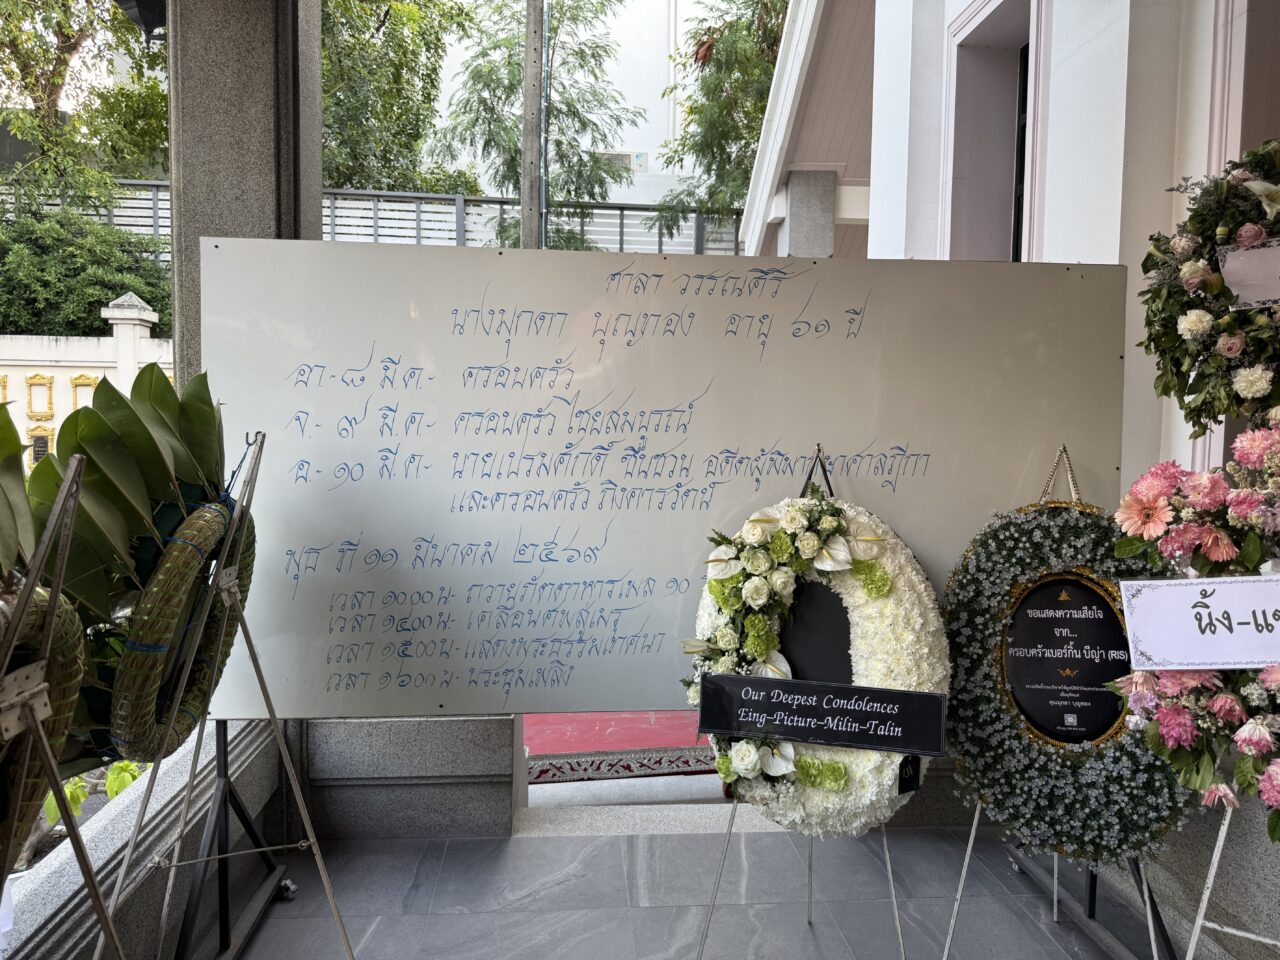 ศาลา วรรณศิริ
นางมุกดา บุญทอง อายุ ๖๑ ปี
อา.-๘ มี.ค.- ครอบครัว
จ.- ๙ มี.ค.- ครอบครัว ไชยสมบูรณ์
อ.-๑๐ มี.ค.- นายเปรมศักดิ์ ชื่นชวน อดีตผู้พิพากษาศาลฎีกา
และครอบครัว
พุธ ที่ ๑๑ มีนาคม ๒๕๖๙
เวลา ๑๐.๐๐ น.- ถวายภัตตาหารเพล ๑๐
เวลา ๑๔.๐๐ น.- เคลื่อนศพสู่เมรุ
เวลา ๑๕.๐๐ น.- แสดงพระธรรมเทศนา
เวลา ๑๖.๐๐ น.- ประชุมเพลิง
Our Deepest Condolences
Eing-Picture-Milin-Talin
ขอแสดงความเสียใจ
จาก...
ครอบครัวเบอร์กิ้น บีญ่า (RIS)
คุณมุกดา บุญทอง
นิ้ง-แ